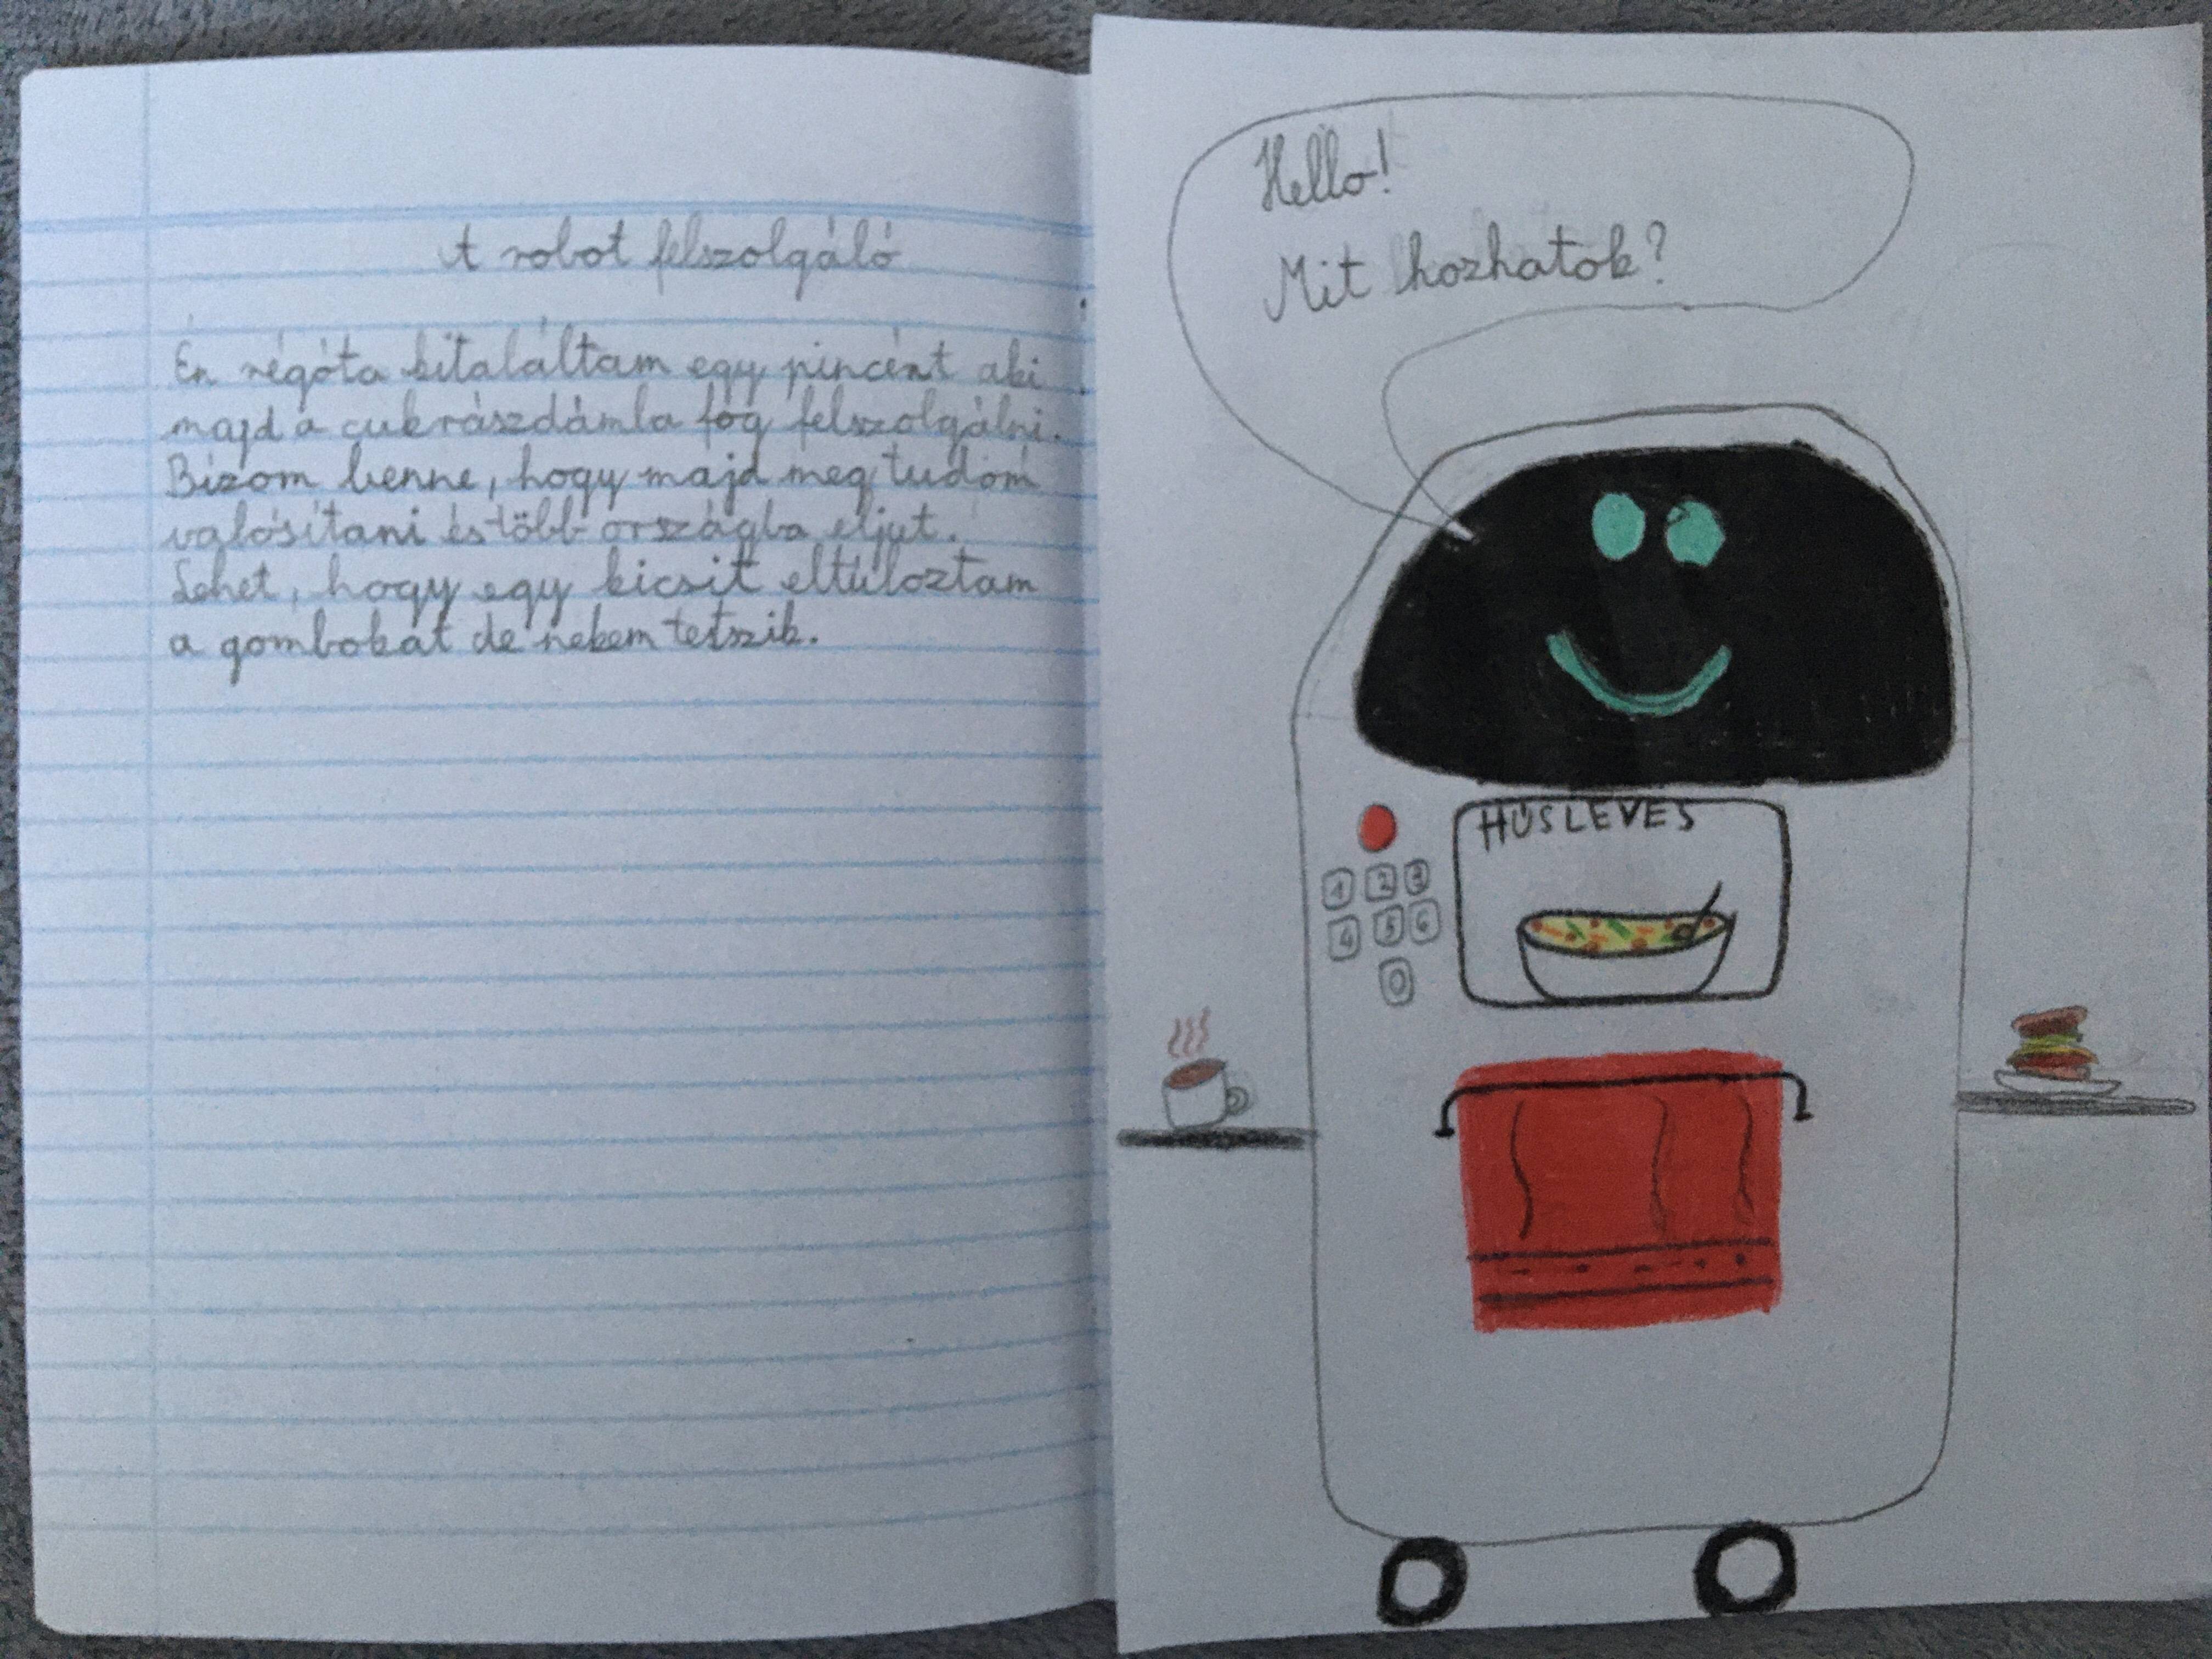 A robot felszolgáló
Én régóta kitaláltam egy pincért aki
majd a cukrászdámba fog felszolgálni.
Bízom benne, hogy majd meg tudom
valósítani és több országba eljut.
Lehet, hogy egy kicsit eltúloztam
a gombokat de nekem tetszik.
Hello!
Mit hozhatok?
HÚSLEVES
1 2 3
4 5 6
0